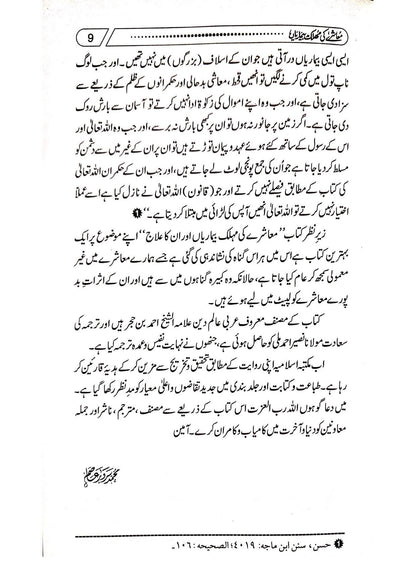 معاشرے کی مہلک بیماریاں 9
ایسی ایسی بیماریاں در آتی ہیں جو ان کے اسلاف (بزرگوں) میں نہیں تھیں۔ اور جب لوگ
ناپ تول میں کمی کرنے لگیں تو انھیں قحط، معاشی بدحالی اور حکمرانوں کے ظلم کے ذریعے سے
سزا دی جاتی ہے، اور جب وہ اپنے اموال کی زکوٰۃ ادا نہیں کرتے تو آسمان سے بارش روک
دی جاتی ہے۔ اگر زمین پر جانور نہ ہوں تو ان پر کبھی بارش نہ برسے، اور جب وہ اللہ تعالیٰ اور
اس کے رسول کے ساتھ کئے ہوئے عہد و پیمان توڑتے ہیں تو ان پر ان کے غیر میں سے دشمن کو
مسلط کر دیا جاتا ہے جو اُن کی جمع پونجی لوٹ لے جاتے ہیں، اور جب ان کے حکمران اللہ تعالیٰ
کی کتاب کے مطابق فیصلے نہیں کرتے اور جو (قانون) اللہ تعالیٰ نے نازل کیا ہے اسے عملاً
اختیار نہیں کرتے تو اللہ تعالیٰ انھیں آپس کی لڑائی میں مبتلا کر دیتا ہے۔“ ❶
زیرِ نظر کتاب ”معاشرے کی مہلک بیماریاں اور ان کا علاج“ اپنے موضوع پر ایک
بہترین کتاب ہے اس میں ہر اس گناہ کی نشاندہی کی گئی ہے جسے ہمارے معاشرے میں غیر
معمولی سمجھ کر عام کیا جاتا ہے، حالانکہ وہ کبیرہ گناہوں میں سے ہیں اور ان کے اثراتِ بد
پورے معاشرے کو لپیٹ میں لیے ہوئے ہیں۔
کتاب کے مصنف معروف عربی عالم دین علامہ الشیخ احمد بن حجر ہیں اور ترجمہ کی
سعادت مولانا نصیر احمد ملی کو حاصل ہوئی ہے، جنھوں نے نہایت نفیس و عمدہ ترجمہ کیا ہے۔
اب مکتبہ اسلامیہ اپنی روایت کے مطابق تحقیق و تخریج سے مزین کر کے ہدیۂ قارئین کر
رہا ہے۔ طباعت و کتابت اور جلد بندی میں جدید تقاضوں و اعلیٰ معیار کو مدِ نظر رکھا گیا ہے۔
میں دعا گو ہوں اللہ رب العزت اس کتاب کے ذریعے سے مصنف، مترجم، ناشر اور جملہ
معاونین کو دنیا و آخرت میں کامیاب و کامران کرے۔ آمین
محمد سرور عاصم
❶ حسن، سنن ابن ماجه: ٤٠١٩؛ الصحيحه: ١٠٦۔